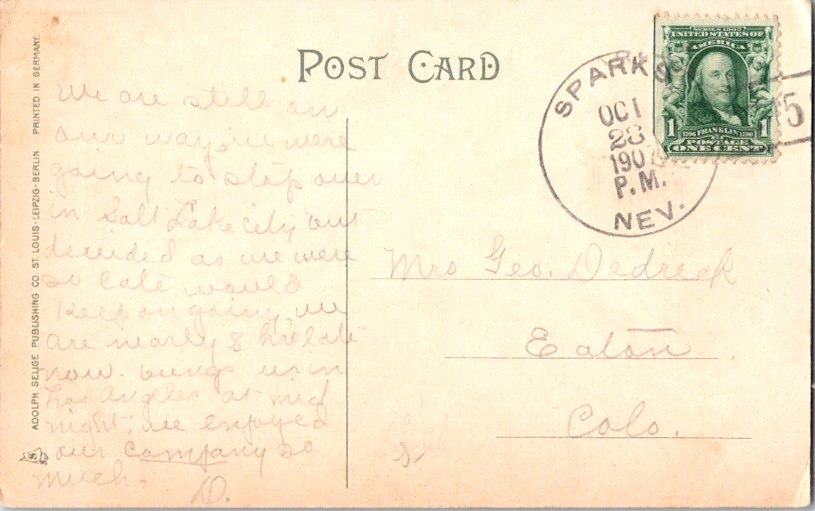 POST CARD
ADOLPH SELIGE PUBLISHING CO. ST. LOUIS-LEIPZIG-BERLIN. PRINTED IN GERMANY.
We are still on
our way, we were
going to stop over
in Salt Lake city but
decided as we were
so late would
Keep on going, we
are nearly 8 hrs late
now. brings us in
Los Angeles at mid
night, we enjoyed
our company so
much.
D.
SPARKS
OCT
28
190
P.M.
NEV.
SERIES 1902
UNITED STATES OF
AMERICA
1 1706 FRANKLIN 1790 1
POSTAGE
ONE CENT
5
Mrs Geo. Dedrick
Eaton
Colo.
S